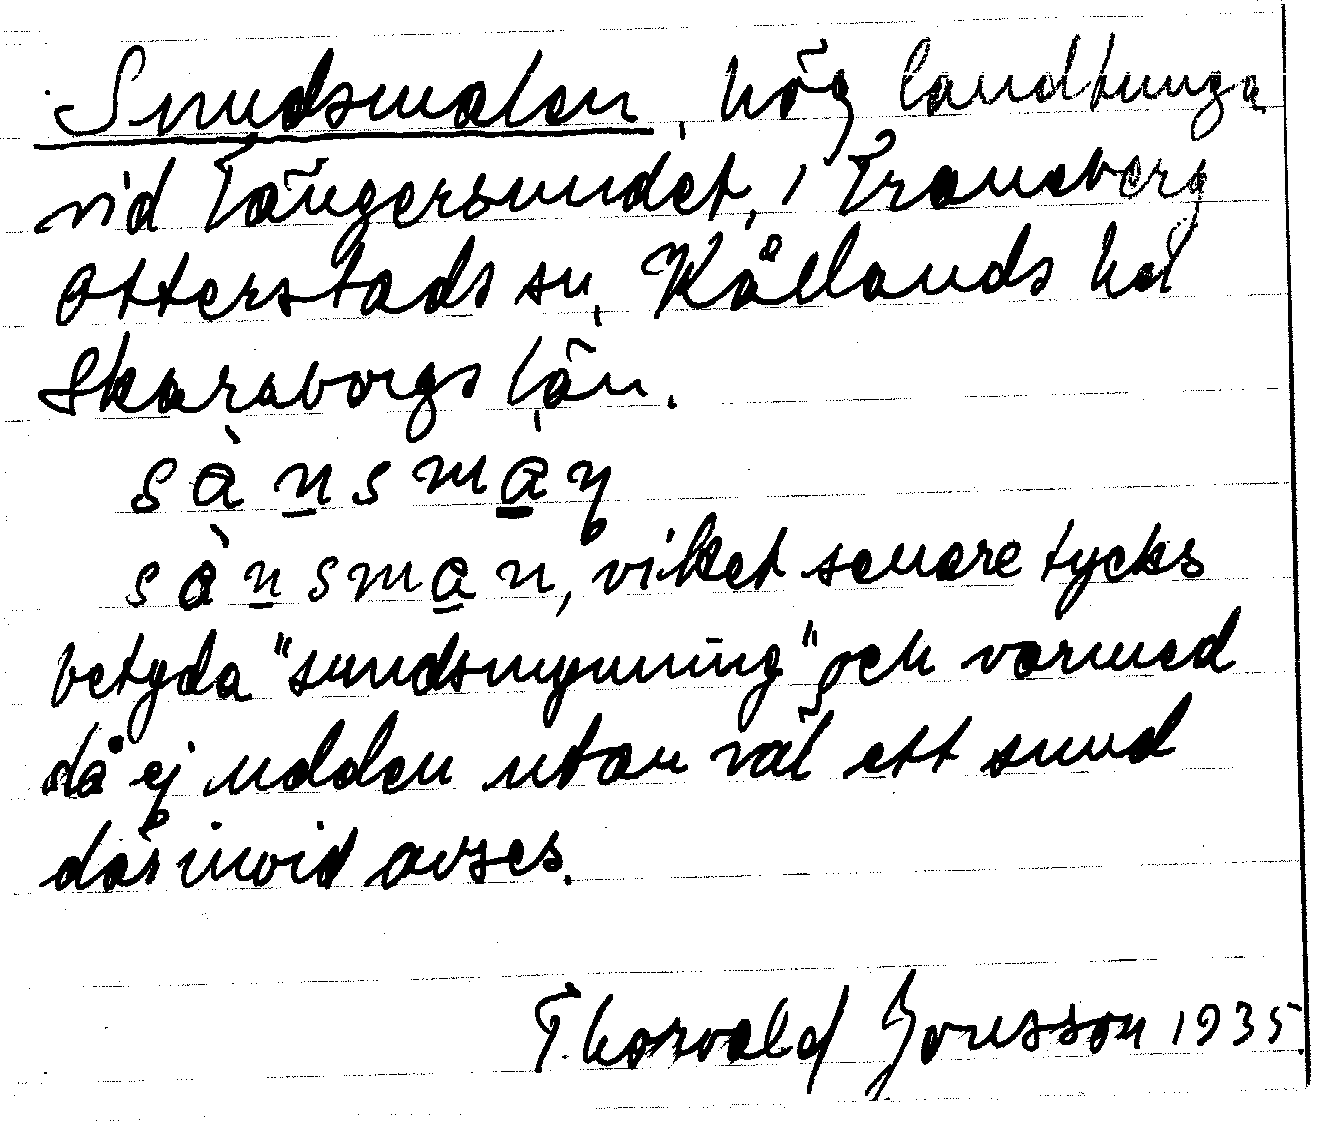 Sundsmalen, hög landtunga
vid Tängersundet, i Traneberg
Otterstads sn, Kållands hd
Skaraborgs län.
sànsmaṇ
sànsman, vilket senare tycks
betyda "sundsmynning" och varmed
då ej udden utan väl ett sund
därinvid avses.
Thorvald Jonsson 1935.